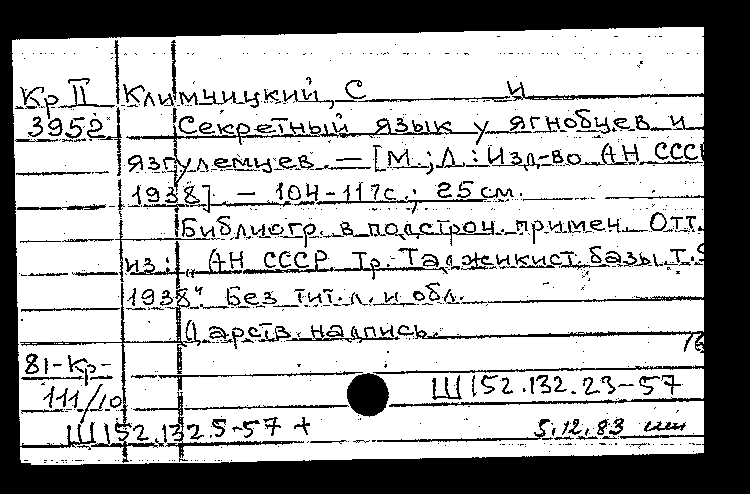 Кр II Климчицкий, С И
3952 Секретный язык у ягнобцев и
язгулемцев. — [М.; Л.: Изд-во АН СССР
1938]. — 104-117с.; 25 см.
Библиогр. в подстроч. примеч. Отт.
из: „АН СССР. Тр. Таджикист. базы. т. 9
1938“. Без тит. л. и обл.
Дарств. надпись.
81-Кр-
111/10 Ш152.132.23-57
Ш152.132.5-57 +
5.12.83